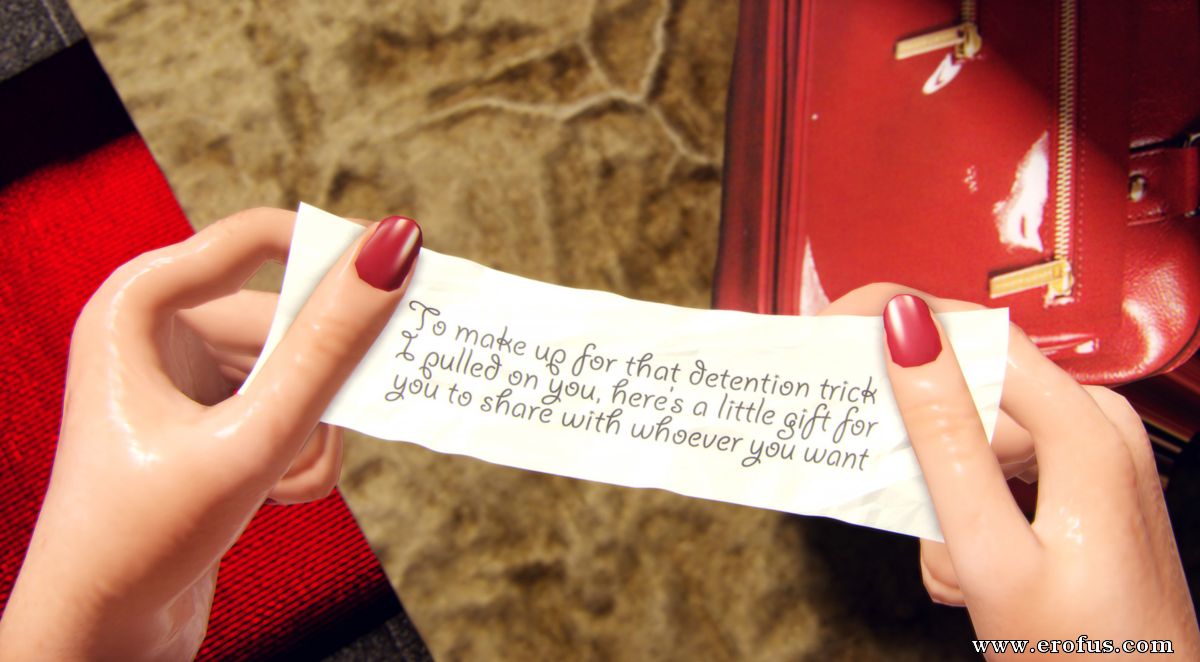 To make up for that detention trick
I pulled on you, here's a little gift for
you to share with whoever you want
www.erofus.com